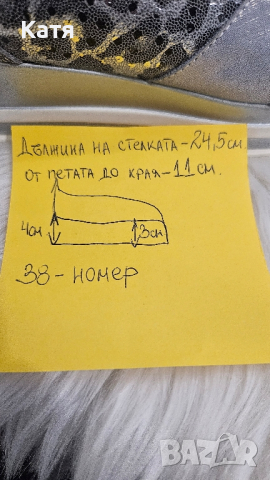 Катя
Дължина на стелката - 24,5 см
от петата до края - 11 см.
4см
3см
38 - номер
BAZAR